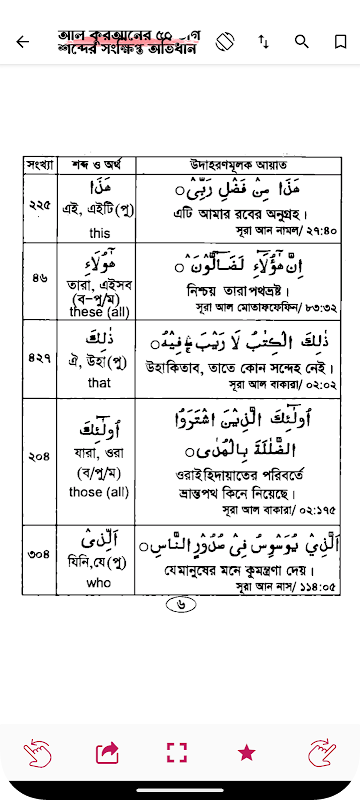 আল কুরআনের ৫০
শব্দের সংক্ষিপ্ত অভিধান
সংখ্যা শব্দ ও অর্থ উদাহরণমূলক আয়াত
২২৫
هٰذَا
এই, এইটি(পু)
this
هٰذَا مِنْ فَضْلِ رَبِّىْ ○
এটি আমার রবের অনুগ্রহ।
সূরা আন নামল/ ২৭:৪০
৪৬
هٰؤُلَاءِ
তারা, এইসব
(ব-পু/ম)
these (all)
اِنَّ هٰٓؤُلَآءِ لَضَآلُّوْنَ ○
নিশ্চয় তারা পথভ্রষ্ট।
সূরা আল মোতাফফেফিন/ ৮৩:৩২
৪২৭
ذٰلِكَ
ঐ, উহা(পু)
that
ذٰلِكَ الْكِتٰبُ لَا رَيْبَ فِيْهِ ○
উহা কিতাব, তাতে কোন সন্দেহ নেই।
সূরা আল বাকারা/ ০২:০২
২০৪
اُولٰٓئِكَ
যারা, ওরা
(ব/পু/ম)
those (all)
اُولٰٓئِكَ الَّذِيْنَ اشْتَرَوُا
الضَّلٰلَةَ بِالْهُدٰى ○
ওরাই হিদায়াতের পরিবর্তে
ভ্রান্তপথ কিনে নিয়েছে।
সূরা আল বাকারা/ ০২:১৭৫
৩০৪
اَلَّذِىْ
যিনি,যে(পু)
who
اَلَّذِىْ يُوَسْوِسُ فِىْ صُدُوْرِ النَّاسِ ○
যে মানুষের মনে কুমন্ত্রণা দেয়।
সূরা আন নাস/ ১১৪:০৫
৬